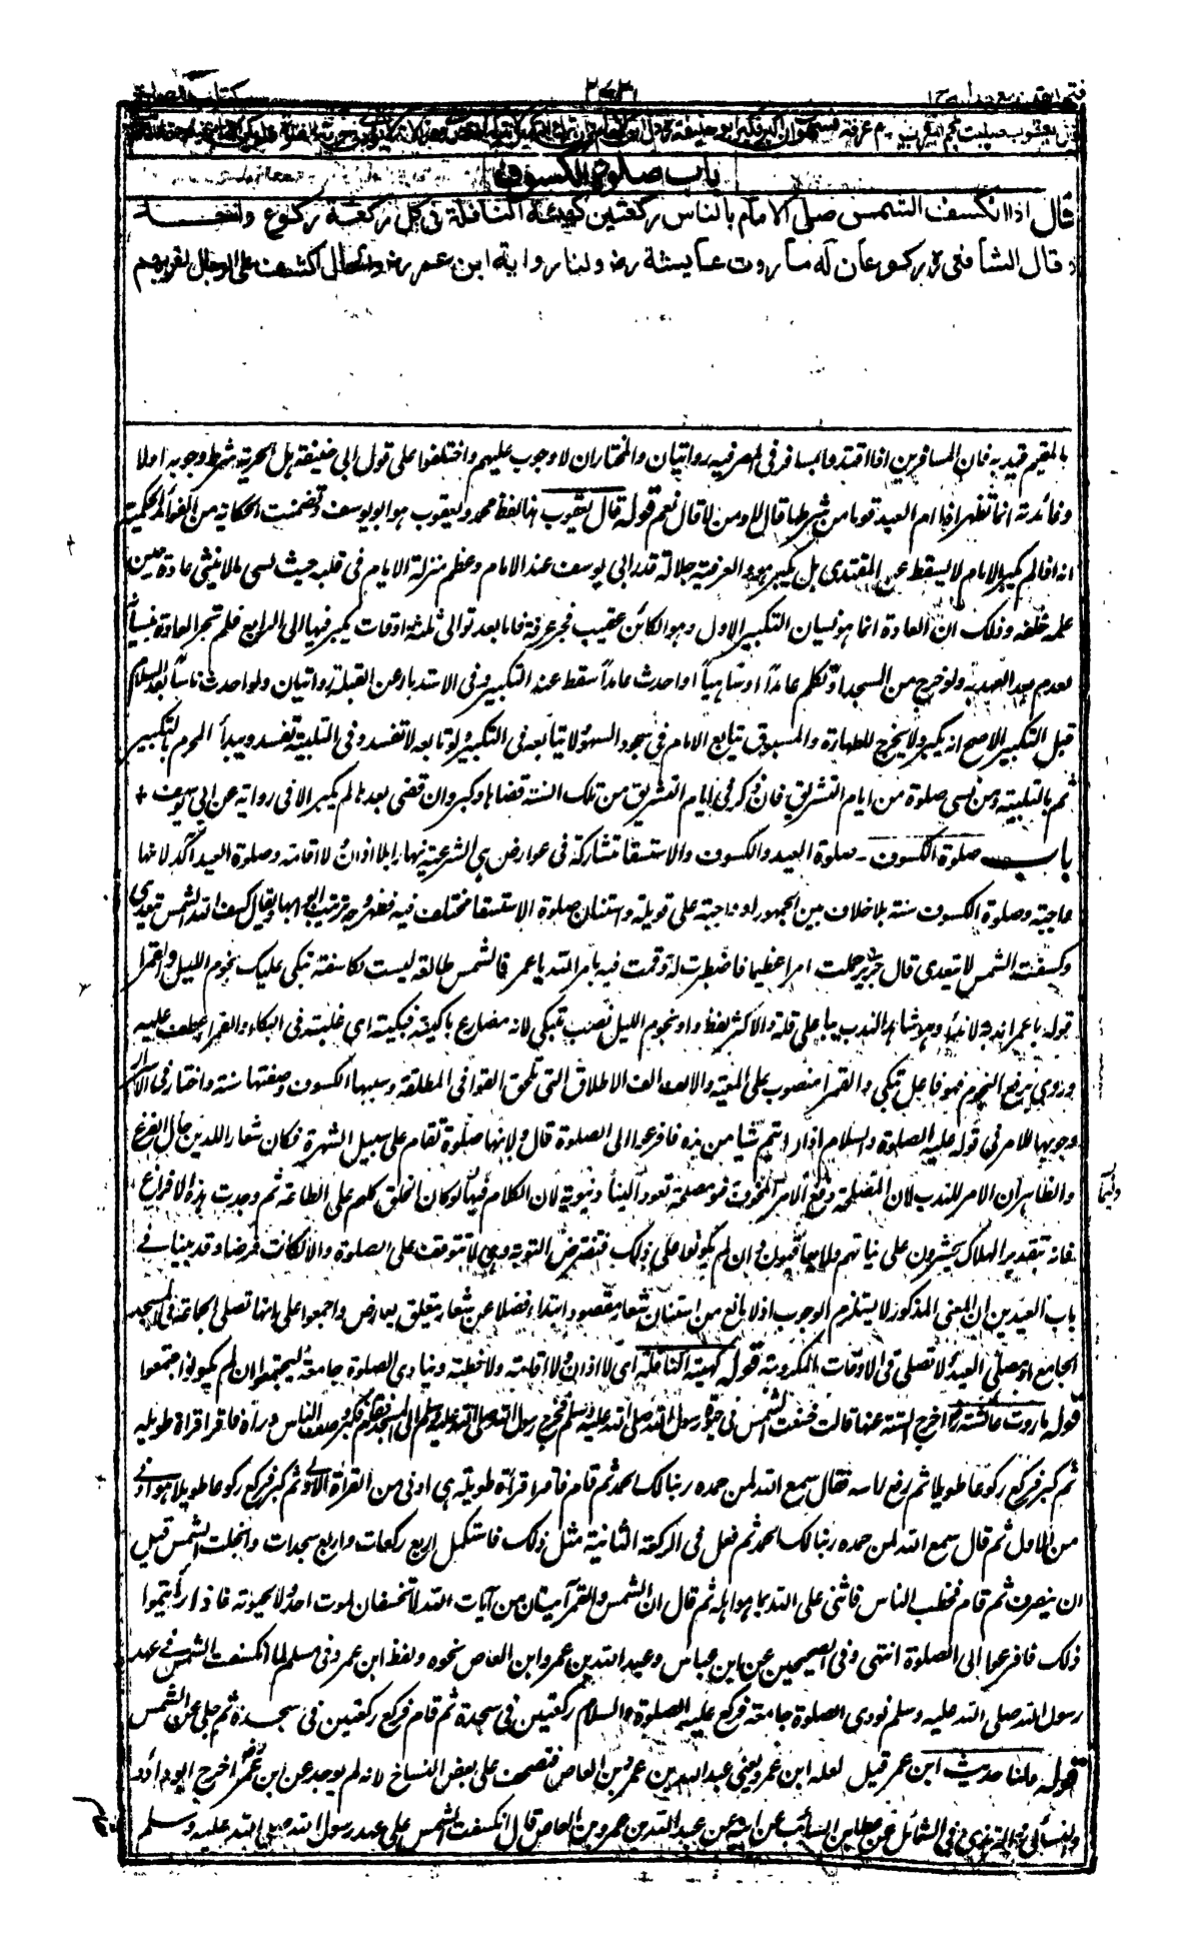 باب صلوة الكسوف
قال اذا انكسفت الشمس صلى الامام بالناس ركعتين كهيئة النافلة في كل ركعة ركوع واحد
وقال الشافعي ركوعان له ما روت عايشة رض ولنا رواية ابن عمر رض والحال اكشف على الرجال لقربهم
بالمقيم قيد به فان المسافرين اذا اقتدوا بمسافر في المصر فيه روايتان والمختار ان لا وجوب عليهم واختلفوا على قول ابي حنيفة هل الحرية شرط وجوبه ام لا
وفائدته انما تظهر اذا ام العبد قوما من شرطها قال لا ومن لا قال نعم قوله قال يعقوب هذا لفظ محمد ويعقوب هو ابو يوسف وتضمنت الحكاية من الفوائد الحكمية
انه اذا لم يكبر الامام لا يسقط عن المقتدي بل يكبر هو والعرفية جلالة قدر ابي يوسف عند الامام وعظم منزلة الامام في قلبه حيث نسي ما لا ينسى عادة حين
علمه خلفه وذلك ان العادة انما هو نسيان التكبير الاول وهو الكائن عقيب فجر عرفة فاما بعد توالي ثلثة اوقات يكبر فيها الى الرابع فلم تجر العادة بنسيانه
لعدم بعد العهد به ولو خرج من المسجد او تكلم عامدا او ساهيا او احدث عامدا سقط عنه التكبير وفي الاستدبار عن القبلة روايتان ولو احدث ناسيا بعد السلام
قبل التكبير الاصح انه يكبر ولا يخرج للطهارة والمسبوق يتابع الامام في سجود السهو ولا يتابعه في التكبير ولو تابعه لا تفسد وفي التلبية تفسد ويبدأ المحرم بالتكبير
ثم بالتلبية ومن نسي صلوة من ايام التشريق فان ذكر في ايام التشريق من تلك السنة قضاها وكبر وان قضى بعدها لم يكبر الا في رواية عن ابي يوسف +
باب صلوة الكسوف ـ صلوة العيد والكسوف والاستسقا متشاركة في عوارض هي الشرعية نهارا بلا اذان ولا اقامة وصلوة العيد آكد لانها
واجبة وصلوة الكسوف سنة بلا خلاف بين الجمهور او واجبة على قويلة واستنان صلوة الاستسقا مختلف فيه فظهر وجه ترتيب ابوابها ويقال كسف الله الشمس يتعدى
وكسفت الشمس لا يتعدى قال جرير حملت امرا عظيما فاضطبرت له وقمت فيه بامر الله يا عمر فالشمس طالعة ليست بكاسفة تبكي عليك نجوم الليل والقمرا
قوله يا عمر ندبة لا نداء وهو شاهد الندب بيا على قلة والاكثر لفظ وا ونجوم الليل نصب تبكي لانه مضارع باكيته فبكيته اي غلبته في البكاء والقمر عطف عليه
وروي برفع النجوم فهو فاعل تبكي والقمر منصوب على المعية والالف الف الاطلاق التي تلحق القوافي المطلقة وسببها الكسوف وصفتها سنة واختار في الاسرار
وجوبها للامر في قوله عليه الصلوة والسلام اذا رايتم شيا من هذه فافزعوا الى الصلوة قال ولانها صلوة تقام على سبيل الشهرة فكان شعار للدين حال الفزع
والظاهر ان الامر للندب لان المصلحة دفع الامر المخوف فهو مصلحة تعود الينا دنيوية لان الكلام فيما لو كان الخلق كلهم على الطاعة ثم وجدت هذه الافزاع
فانه بتقدير الهلاك يحشرون على نياتهم ولا يعاقبون وان لم يكونوا على ذلك فتفترض التوبة وهي لا تتوقف على الصلوة والا لكانت فرضا وقد بينا في
باب العيدين ان المعنى المذكور لا يستلزم الوجوب اذ لا مانع من استنان شعار مقصود ابتداء فضلا عن شعار يتعلق بعارض واجمعوا على انها تصلى بجماعة في المسجد
الجامع او مصلى العيد ولا تصلى في الاوقات المكروهة قوله كهيئة النافلة اي بلا اذان ولا اقامة ولا خطبة وينادى الصلوة جامعة ليجتمعوا ان لم يكونوا اجتمعوا
قوله ما روت عائشة رض اخرج الستة عنها قالت خسفت الشمس في حيوة رسول الله صلى الله عليه وسلم فخرج رسول الله صلى الله عليه وسلم الى المسجد فقام فكبر وصف الناس وراه فاقرا قراة طويلة
ثم كبر فركع ركوعا طويلا ثم رفع راسه فقال سمع الله لمن حمده ربنا لك الحمد ثم قام فاقترا قراءة طويلة هي ادنى من القراءة الاولى ثم كبر فركع ركوعا طويلا هو ادنى
من الاول ثم قال سمع الله لمن حمده ربنا لك الحمد ثم فعل في الركعة الثانية مثل ذلك فاستكمل اربع ركعات واربع سجدات وانجلت الشمس قبل
ان ينصرف ثم قام فخطب الناس فاثنى على الله بما هو اهله ثم قال ان الشمس والقمر آيتان من آيات الله لا تخسفان لموت احد ولا لحيوته فاذا رأيتموا
ذلك فافزعوا الى الصلوة انتهى وفي الصحيحين عن ابن عباس وعبد الله بن عمرو ابن العاص نحوه ولفظ ابن عمرو في مسلم لما انكسفت الشمس في عهد
رسول الله صلى الله عليه وسلم نودي الصلوة جامعة فركع عليه الصلوة والسلام ركعتين في سجدة ثم قام فركع ركعتين في سجدة ثم جلي عن الشمس
قوله ولنا حديث ابن عمر قيل لعله ابن عمرو يعني عبد الله بن عمرو بن العاص فتصحف على بعض النساخ لانه لم يوجد عن ابن عمر اخرج ابو داؤد
والنسائي والترمذي في الشمائل عن عطا بن السائب عن ابيه عن عبد الله بن عمرو بن العاص قال انكسفت الشمس على عهد رسول الله صلى الله عليه وسلم